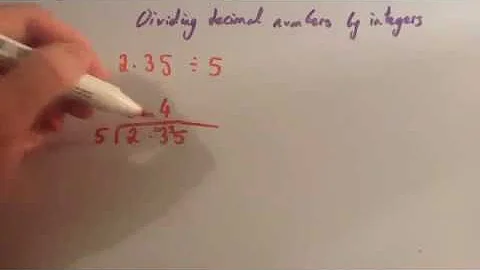 Dividing decimal numbers by integers
2.35 ÷ 5
4
5 2.335